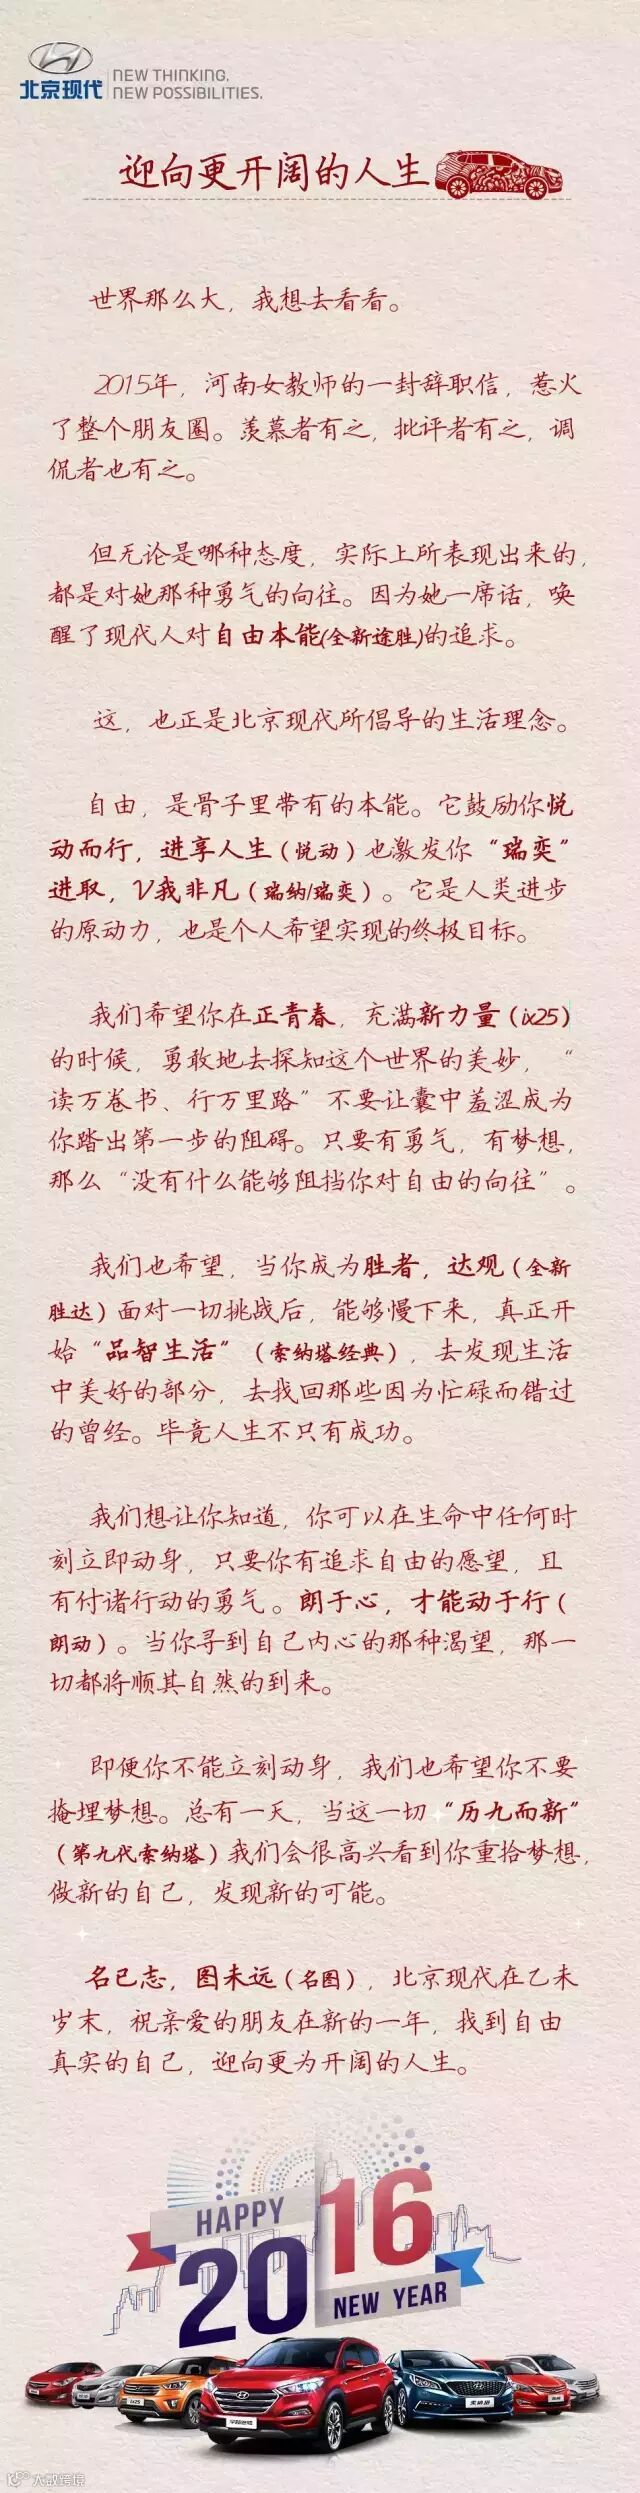 北京现代
NEW THINKING.
NEW POSSIBILITIES.
迎向更开阔的人生
世界那么大，我想去看看。
2015年，河南女教师的一封辞职信，惹火
了整个朋友圈。羡慕者有之，批评者有之，调
侃者也有之。
但无论是哪种态度，实际上所表现出来的，
都是对她那种勇气的向往。因为她一席话，唤
醒了现代人对自由本能(全新途胜)的追求。
这，也正是北京现代所倡导的生活理念。
自由，是骨子里带有的本能。它鼓励你悦
动而行，进享人生（悦动）也激发你“瑞奕”
进取，V我非凡（瑞纳/瑞奕）。它是人类进步
的原动力，也是个人希望实现的终极目标。
我们希望你在正青春，充满新力量（ix25）
的时候，勇敢地去探知这个世界的美妙，“
读万卷书、行万里路”不要让囊中羞涩成为
你踏出第一步的阻碍。只要有勇气，有梦想，
那么“没有什么能够阻挡你对自由的向往”。
我们也希望，当你成为胜者，达观（全新
胜达）面对一切挑战后，能够慢下来，真正开
始“品智生活”（索纳塔经典），去发现生活
中美好的部分，去找回那些因为忙碌而错过
的曾经。毕竟人生不只有成功。
我们想让你知道，你可以在生命中任何时
刻立即动身，只要你有追求自由的愿望，且
有付诸行动的勇气。朗于心，才能动于行（
朗动）。当你寻到自己内心的那种渴望，那一
切都将顺其自然的到来。
即便你不能立刻动身，我们也希望你不要
掩埋梦想。总有一天，当这一切“历九而新”
（第九代索纳塔）我们会很高兴看到你重拾梦想，
做新的自己，发现新的可能。
名已志，图未远（名图），北京现代在乙未
岁末，祝亲爱的朋友在新的一年，找到自由
真实的自己，迎向更为开阔的人生。
HAPPY
2016
NEW YEAR
ix25
全新途胜
索纳塔
大数跨境